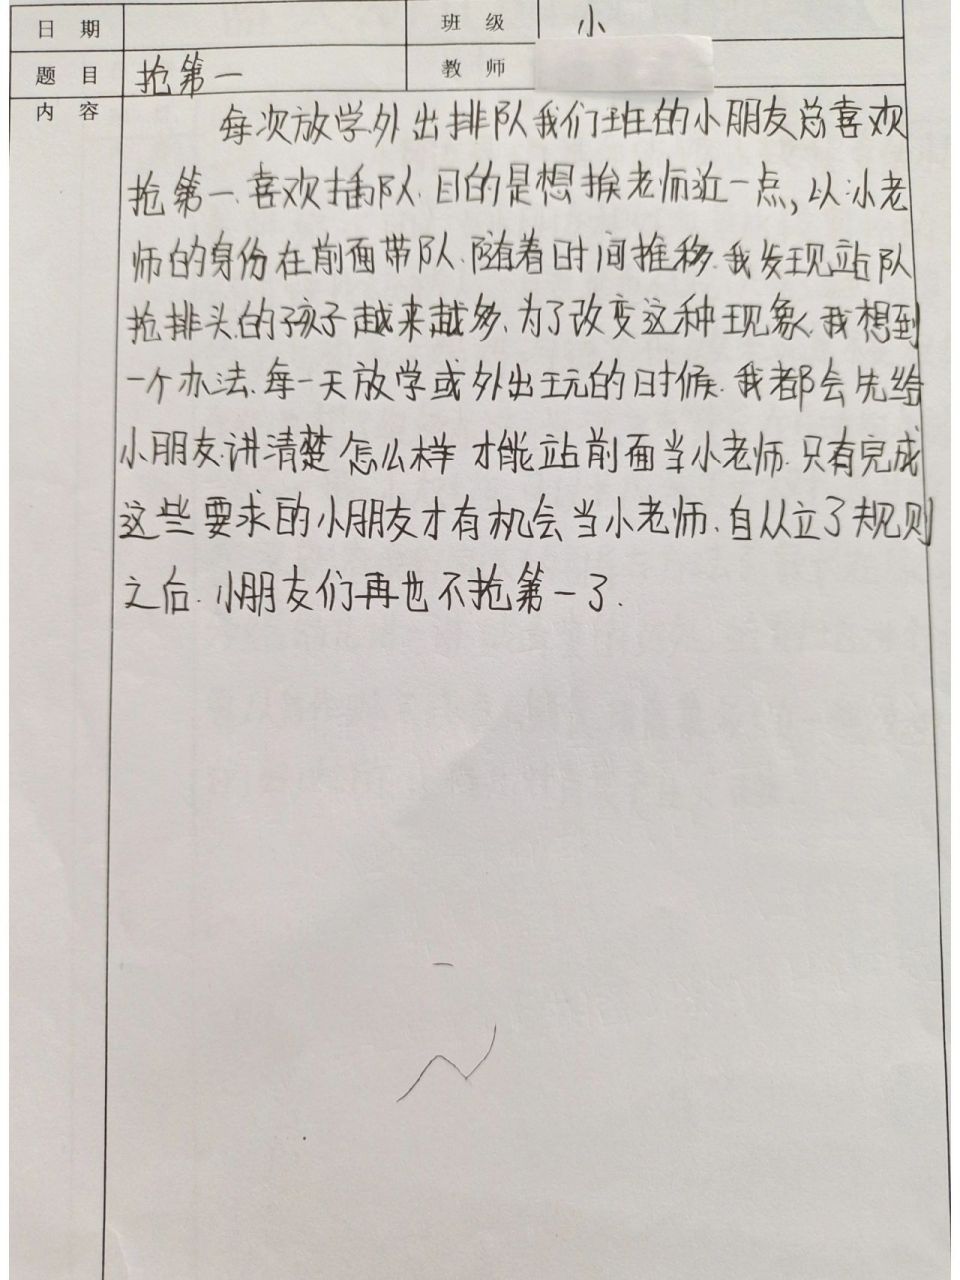 日 期 班 级 小
题 目 抢第一 教 师
内 容
每次放学外出排队我们班的小朋友总喜欢
抢第一、喜欢插队、目的是想挨老师近一点，以小老
师的身份在前面带队、随着时间推移、我发现站队
抢排头的孩子越来越多、为了改变这种现象、我想到
一个办法、每一天放学或外出玩的时候、我都会先给
小朋友讲清楚怎么样才能站前面当小老师、只有完成
这些要求的小朋友才有机会当小老师、自从立了规则
之后、小朋友们再也不抢第一了.